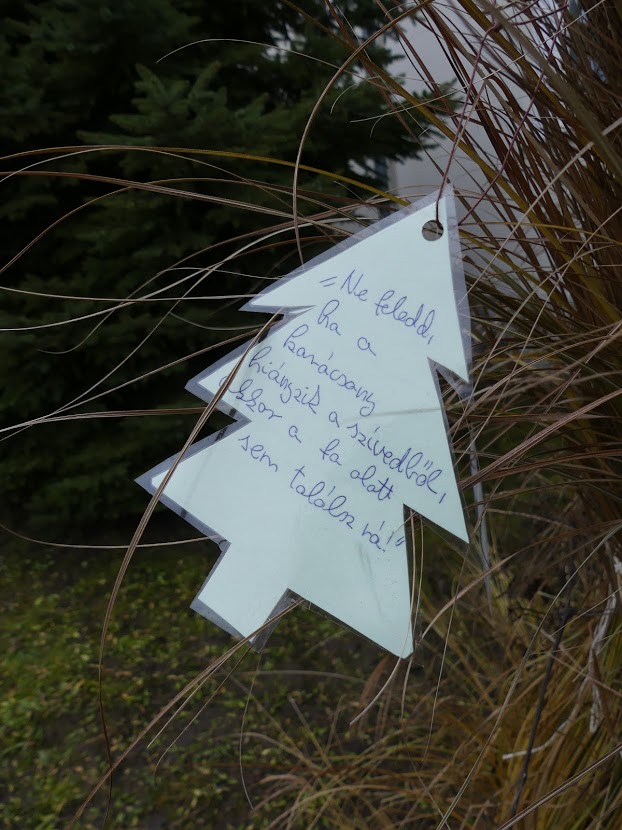 „Ne feledd,
ha a
karácsony
hiányzik a szívedből,
akkor a fa alatt
sem találsz rá!"